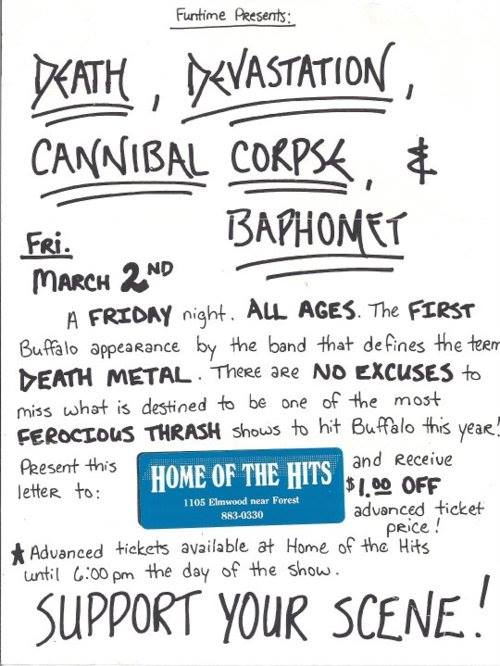 Funtime Presents:
DEATH, DEVASTATION,
CANNIBAL CORPSE, &
BAPHOMET
FRI.
MARCH 2ND
A FRIDAY night. ALL AGES. The FIRST
Buffalo appearance by the band that defines the term
DEATH METAL. There are NO EXCUSES to
miss what is destined to be one of the most
FEROCIOUS THRASH shows to hit Buffalo this year!
Present this
letter to:
HOME OF THE HITS
1105 Elmwood near Forest
883-0330
and receive
$1.00 OFF
advanced ticket
price!
★ Advanced tickets available at Home of the Hits
until 6:00 pm the day of the show.
SUPPORT YOUR SCENE!